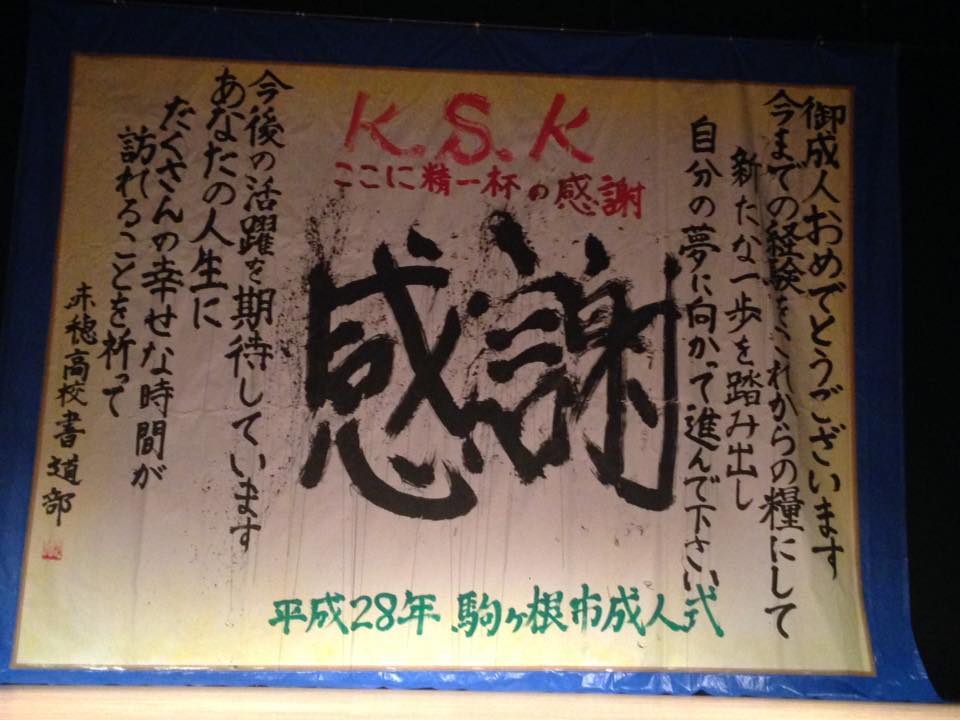 御成人おめでとうございます
今までの経験をこれからの糧にして
新たな一歩を踏み出し
自分の夢に向かって進んで下さい
K.S.K
ここに精一杯の感謝
感謝
今後の活躍を期待しています
あなたの人生に
たくさんの幸せな時間が
訪れることを祈って
赤穂高校書道部
平成28年 駒ヶ根市成人式